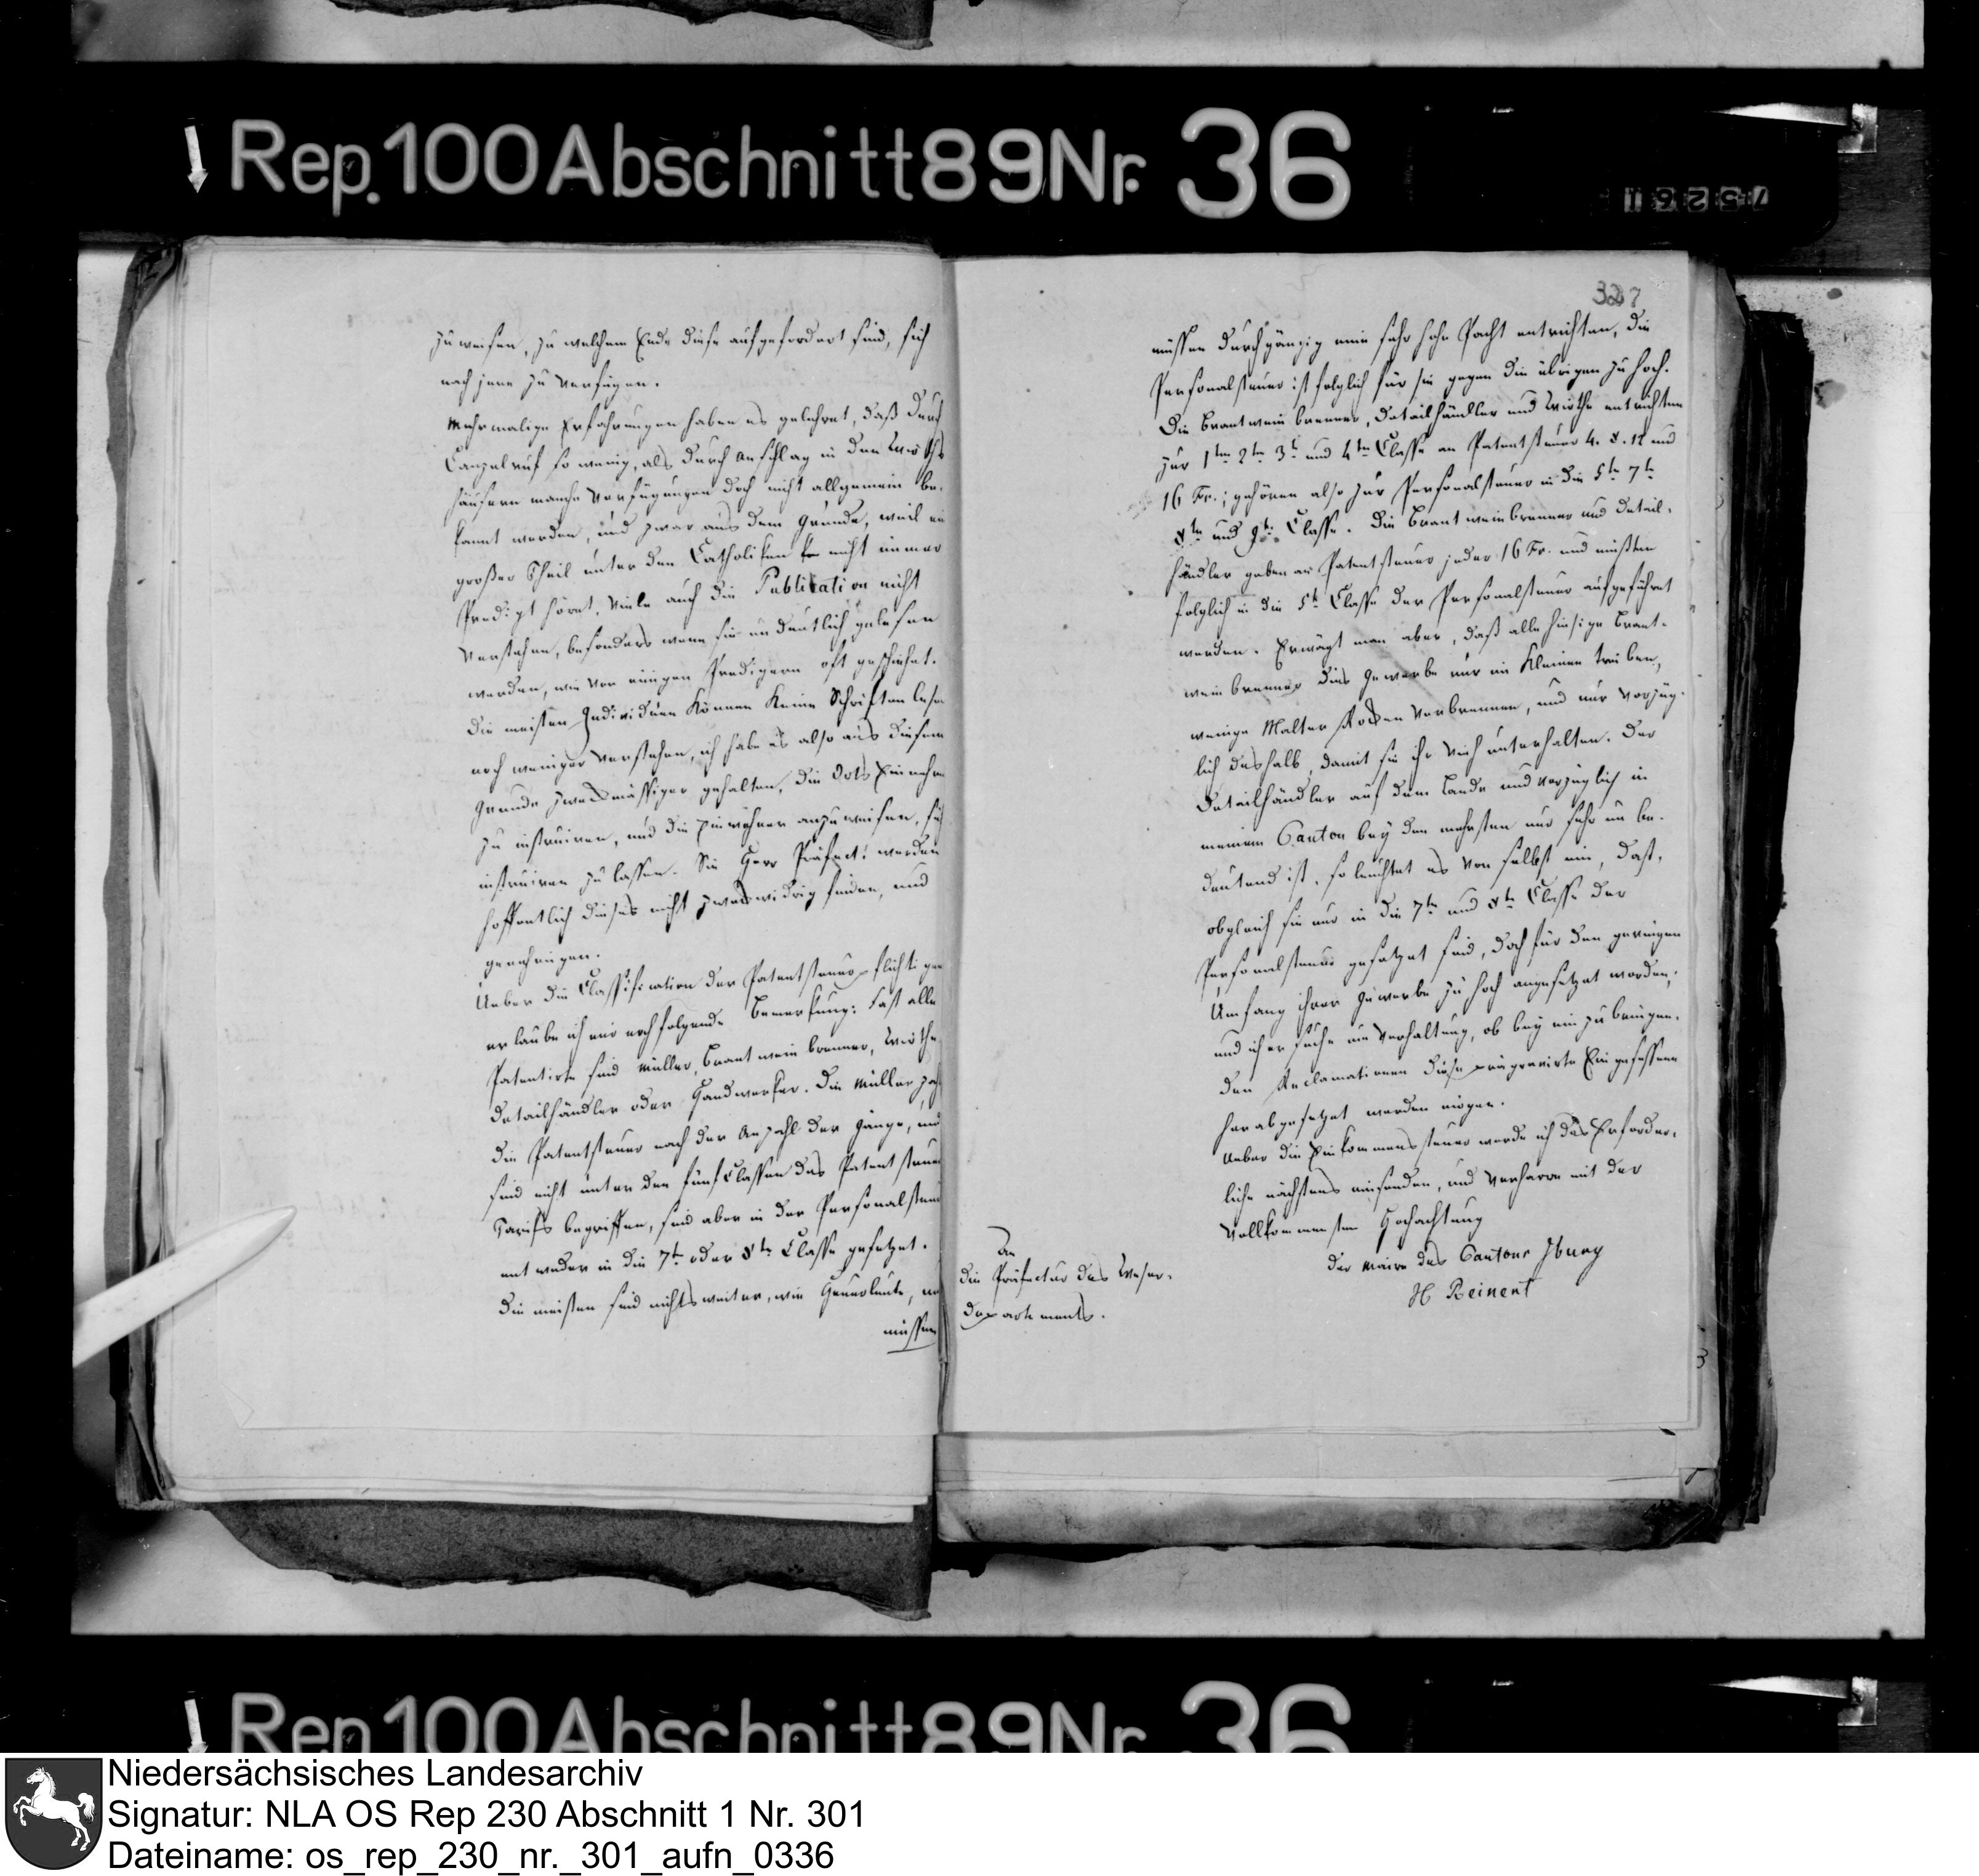 Rep. 100 Abschnitt 89 Nr. 36
75261
zuweisen, zu welchem Ende diese aufgefordert sind, sich
nach jene zu verfügen.
Mehrmalige Erfahrungen haben es gelehret, daß durch
Canzelruf so wenig, als durch Anschlag in den Wirths
häusern manche Verfügungen doch nicht allgemein be-
kannt werden, und zwar aus dem Grunde, weil ein
großer Theil unter den Catholiken nicht immer
Predigt höret, viele auch die Publication nicht
verstehen, besonders wenn sie undeutlich gelesen
werden, wie von einigen Predigern oft geschiehet.
Die meisten Individuen können keine Schriften lesen
noch weniger verstehen, ich habe es also aus diesem
Grunde zweckmässiger gehalten, die Orts Einnehmer
zu instruiren, und die Einwohner anzuweisen, sich
instruiren zu lassen. Sie Herr Präfect! werden
hoffentlich dieses nicht zweckwidrig finden, und
genehmigen.
Ueber die Classification der Patentsteuerpflichtigen
erlaube ich mir noch folgende Bemerkung: Fast alle
Patentirte sind Müller, Brantweinbrenner, Wirthe
Detailhändler oder Handwerker. Die Müller zah
die Patentsteuer nach der Anzahl der Gänge, und
sind nicht unter den fünf Classen des Patentsteuer
Tarifs begriffen, sind aber in der Personalsteuer
entweder in die 7te oder 8te Classe gesetzet.
Die meisten sind nichts weiter, wie Heuerleute, und
müssen
327
müssen durchgängig eine sehr hohe Pacht entrichten, die
Personalsteuer ist folglich für sie gegen die übrigen zu hoch.
Die Brantweinbrenner, Detailhändler und Wirthe entrichten
zur 1ten 2ten 3t und 4ten Classe an Patentsteuer 4. 8. 12 und
16 Fr.; gehören also zur Personalsteuer in die 5te 7te
8te und 9te Classe. Die Brantweinbrenner und Detail-
händler geben an Patentsteuer jeder 16 Fr. und müßten
folglich in die 5te Classe der Personalsteuer aufgeführet
werden. Erwägt man aber, daß alle hiesige Brant-
weinbrenner dies Gewerbe nur im Kleinen treiben,
wenige Malter Rocken verbrennen, und nur vorzüg-
lich deshalb, damit sie ihr Vieh unterhalten. Der
Detailhändler auf dem Lande und vorzüglich in
meinem Canton bey den mehrsten nur sehr unbe-
deutend ist, so leuchtet es von selbst ein, daß,
obgleich sie nur in die 7te und 8te Classe der
Personalsteuer gesetzet sind, doch für den geringen
Umfang ihrer Gewerbe zu hoch angesetzet worden;
und ich ersuche um Verhaltung, ob bey einzubringen-
den Reclamationen diese prägravirte Eingesessene
herabgesetzet werden mögen.
Ueber die Einkommenssteuer werde ich das Erforder-
liche nächstens einsenden, und verharre mit der
vollkommensten Hochachtung
Der Maire des Cantons Iburg
An
die Präfectur des Weser-
departements.
Rep. 100 Abschnitt 89 Nr. 36
Niedersächsisches Landesarchiv
Signatur: NLA OS Rep 230 Abschnitt 1 Nr. 301
Dateiname: os_rep_230_nr._301_aufn_0336